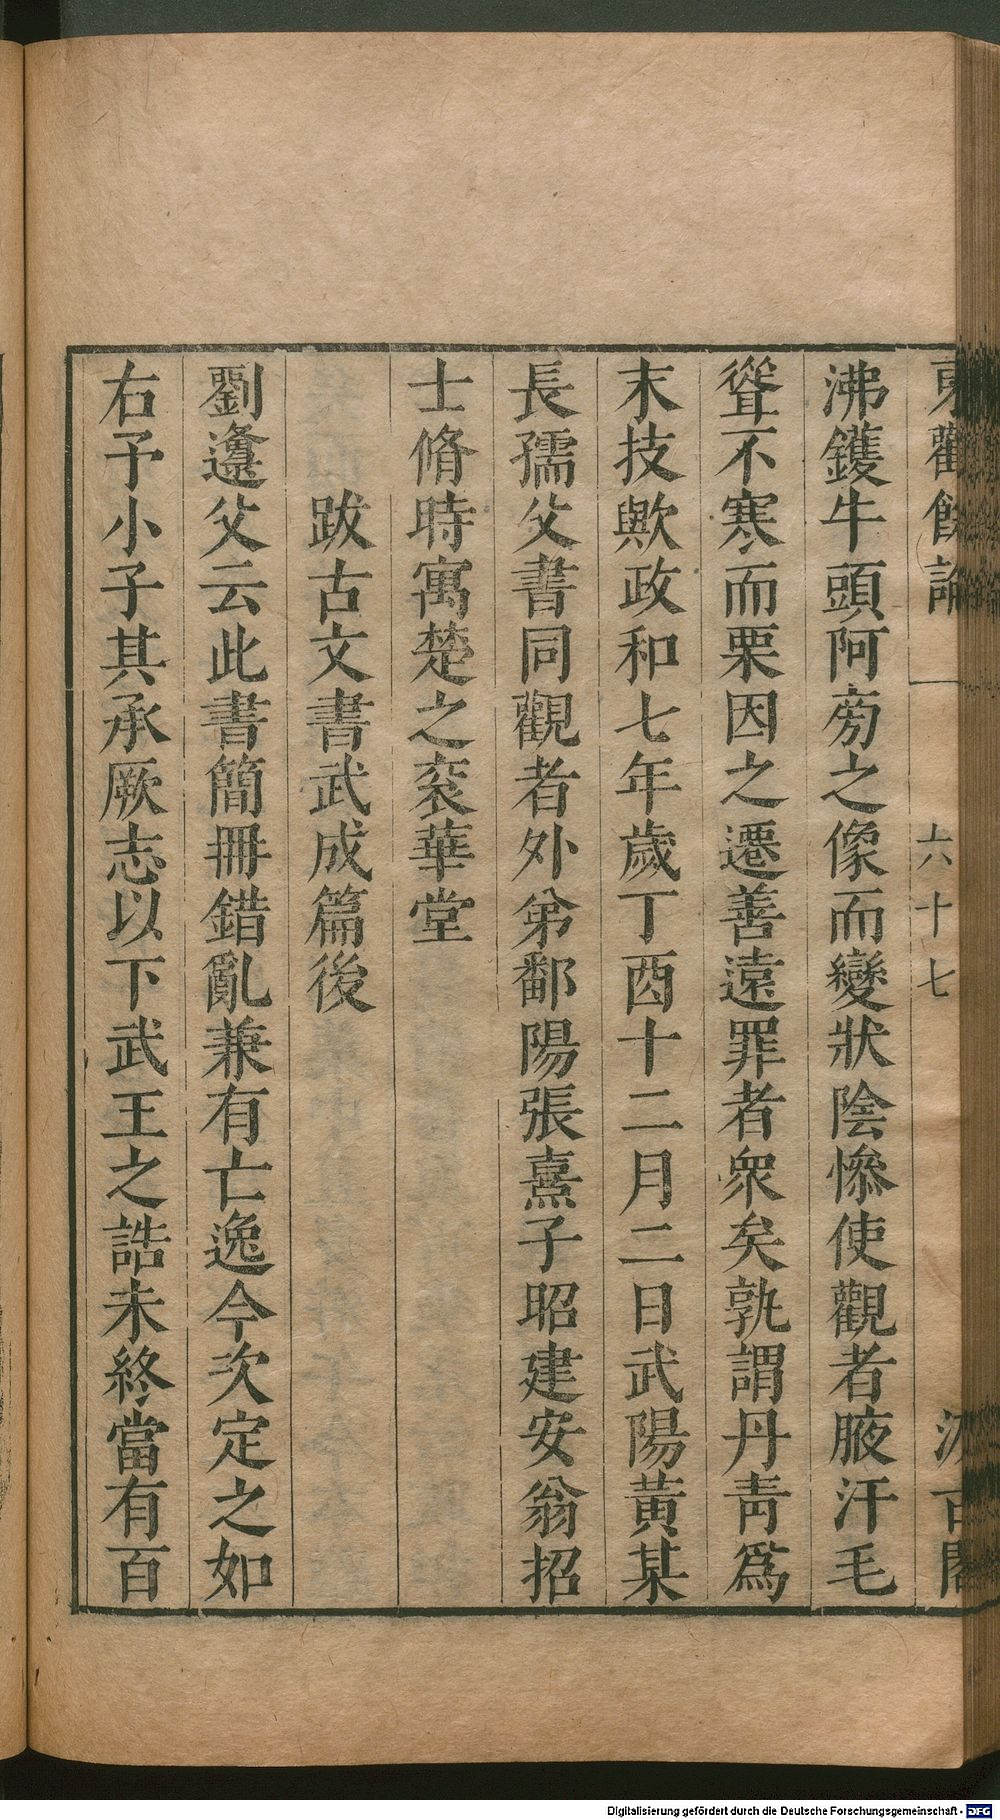 東觀餘論 六十七 汲古閣
沸鑊牛頭阿旁之像而變狀陰慘使觀者腋汗毛
聳不寒而栗因之遷善遠罪者衆矣孰謂丹青爲
末技歟政和七年歲丁酉十二月二日武陽黃某
長孺父書同觀者外弟鄱陽張熹子昭建安翁招
士脩時寓楚之袞華堂
跋古文書武成篇後
劉邍父云此書簡冊錯亂兼有亡逸今次定之如
右予小子其承厥志以下武王之誥未終當有百
Digitalisierung gefördert durch die Deutsche Forschungsgemeinschaft - DFG